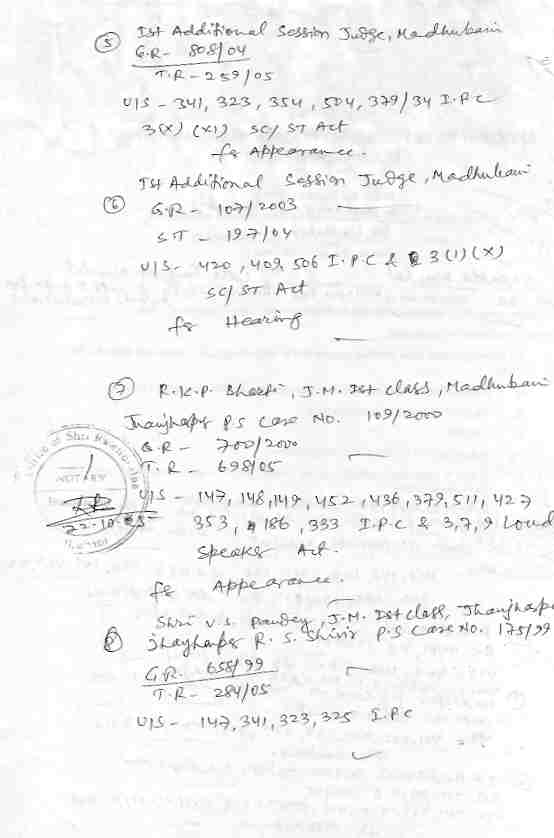 ⑤ Ist Additional Session Judge, Madhubani
G.R- 808/04
T.R-259/05
U/S-341, 323, 354, 504, 379/34 I.P.C
3(X) (XI) SC/ST Act
for Appearance.
Ist Additional Session Judge, Madhubani
⑥ G.R- 107/2003
S.T- 197/04
U/S- 420, 409, 506 I.P.C & 3(1)(X)
SC/ST Act
for Hearing
⑦ R.K.P. J.M. Ist class, Madhubani
P.S case No. 109/2000
G.R- 700/2000
T.R- 698/05
U/S- 147, 148, 149, 452, 436, 379, 511, 427
353, 186, 333 I.P.C & 3,7,9 Loud
Speaker Act.
for Appearance.
Shri V.S. Pandey, J.M. Ist class,
⑧ R.S. Shivir P.S Case No. 175/99
G.R. 658/99
T.R- 284/05
U/S- 147, 341, 323, 325 I.P.C
Shri
NOTARY
22-10-05